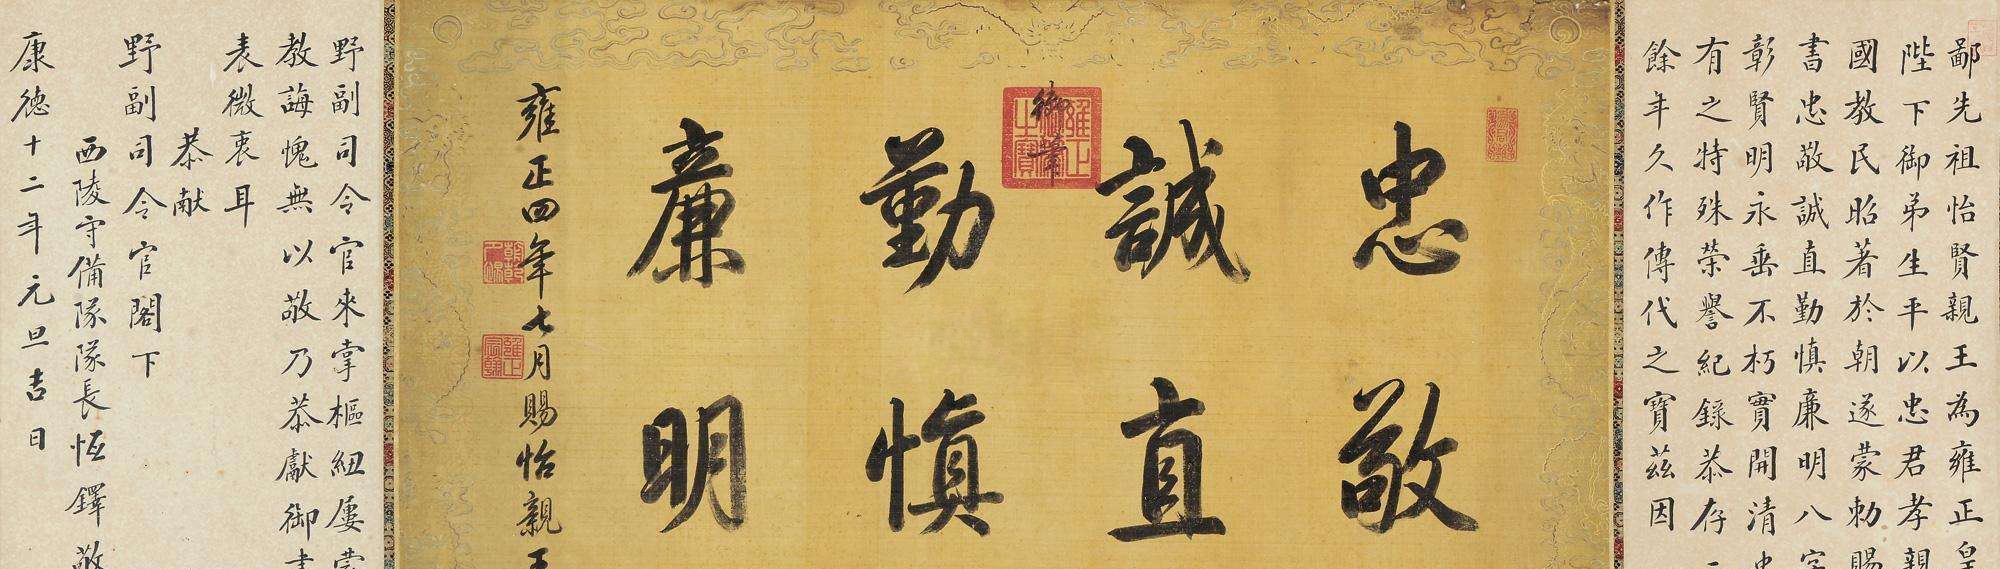 鄙先祖怡賢親王為雍正皇
陛下御弟生平以忠君孝親
國教民昭著於朝遂蒙勅賜
書忠敬誠直勤慎廉明八字
彰賢明永垂不朽實開清史
有之特殊榮譽紀錄恭存二
餘年久作傳代之寶茲因
忠敬
誠直
御筆
雍正御筆之寶
勤慎
廉明
雍正四年七月賜怡親王
朝乾夕惕
雍正宸翰
野副司令官來掌樞紐屢蒙
教誨愧無以敬乃恭獻御書
表微衷耳
恭献
野副司令官閣下
西陵守備隊隊長恆鐸敬
康德十二年元旦吉日